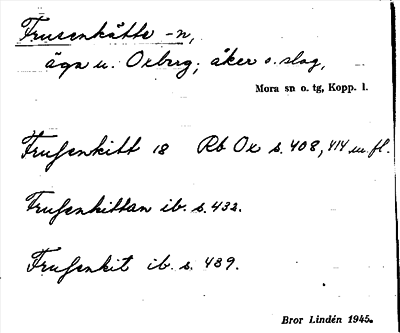 Frusenkåtte -n,
äga u. Oxberg; åker o. slog,
Mora sn o. tg, Kopp. l.
Frusenkitt 18 Rb Ox s. 408, 414 m. fl.
Frusenkittan ib. s. 432.
Frusenkit ib. s. 489.
Bror Lindén 1945.